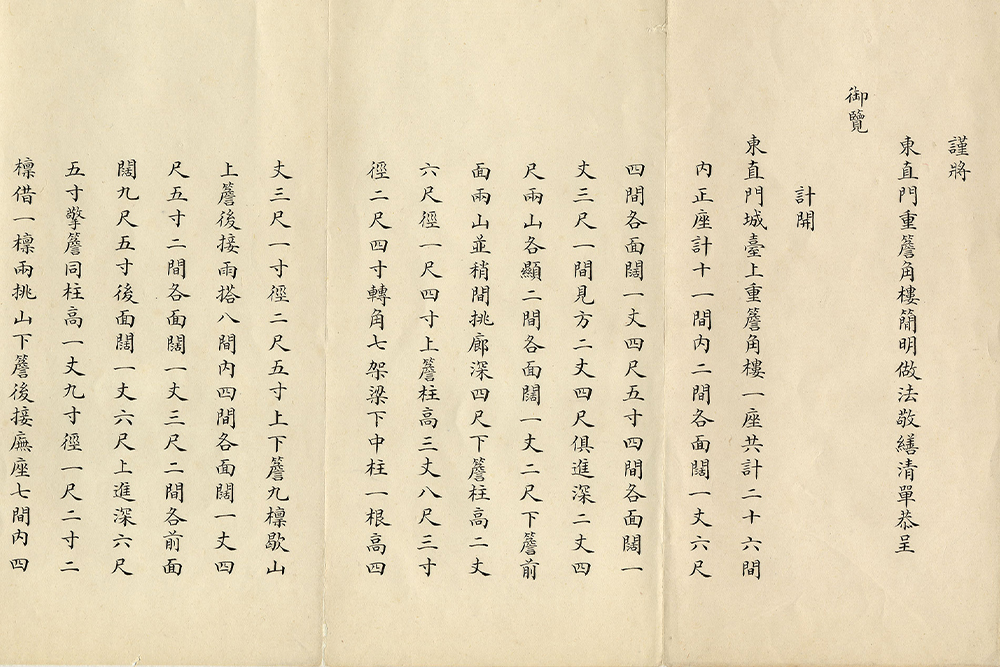 謹將
東直門重簷角樓簡明做法敬繕清單恭呈
御覽
計開
東直門城臺上重簷角樓一座共計二十六間
內正座計十一間內二間各面闊一丈六尺
四間各面闊一丈四尺五寸四間各面闊一
丈三尺一間見方二丈四尺俱進深二丈四
尺兩山各顯二間各面闊一丈二尺下簷前
面兩山並稍間挑廊深四尺下簷柱高二丈
六尺徑一尺四寸上簷柱高三丈八尺三寸
徑二尺四寸轉角七架梁下中柱一根高四
丈三尺一寸徑二尺五寸上下簷九檁歇山
上簷後接兩搭八間內四間各面闊一丈四
尺五寸二間各面闊一丈三尺二間各前面
闊九尺五寸後面闊一丈六尺上進深六尺
五寸擎簷同柱高一丈九寸徑一尺二寸二
檁借一檁兩挑山下簷後接廡座七間內四